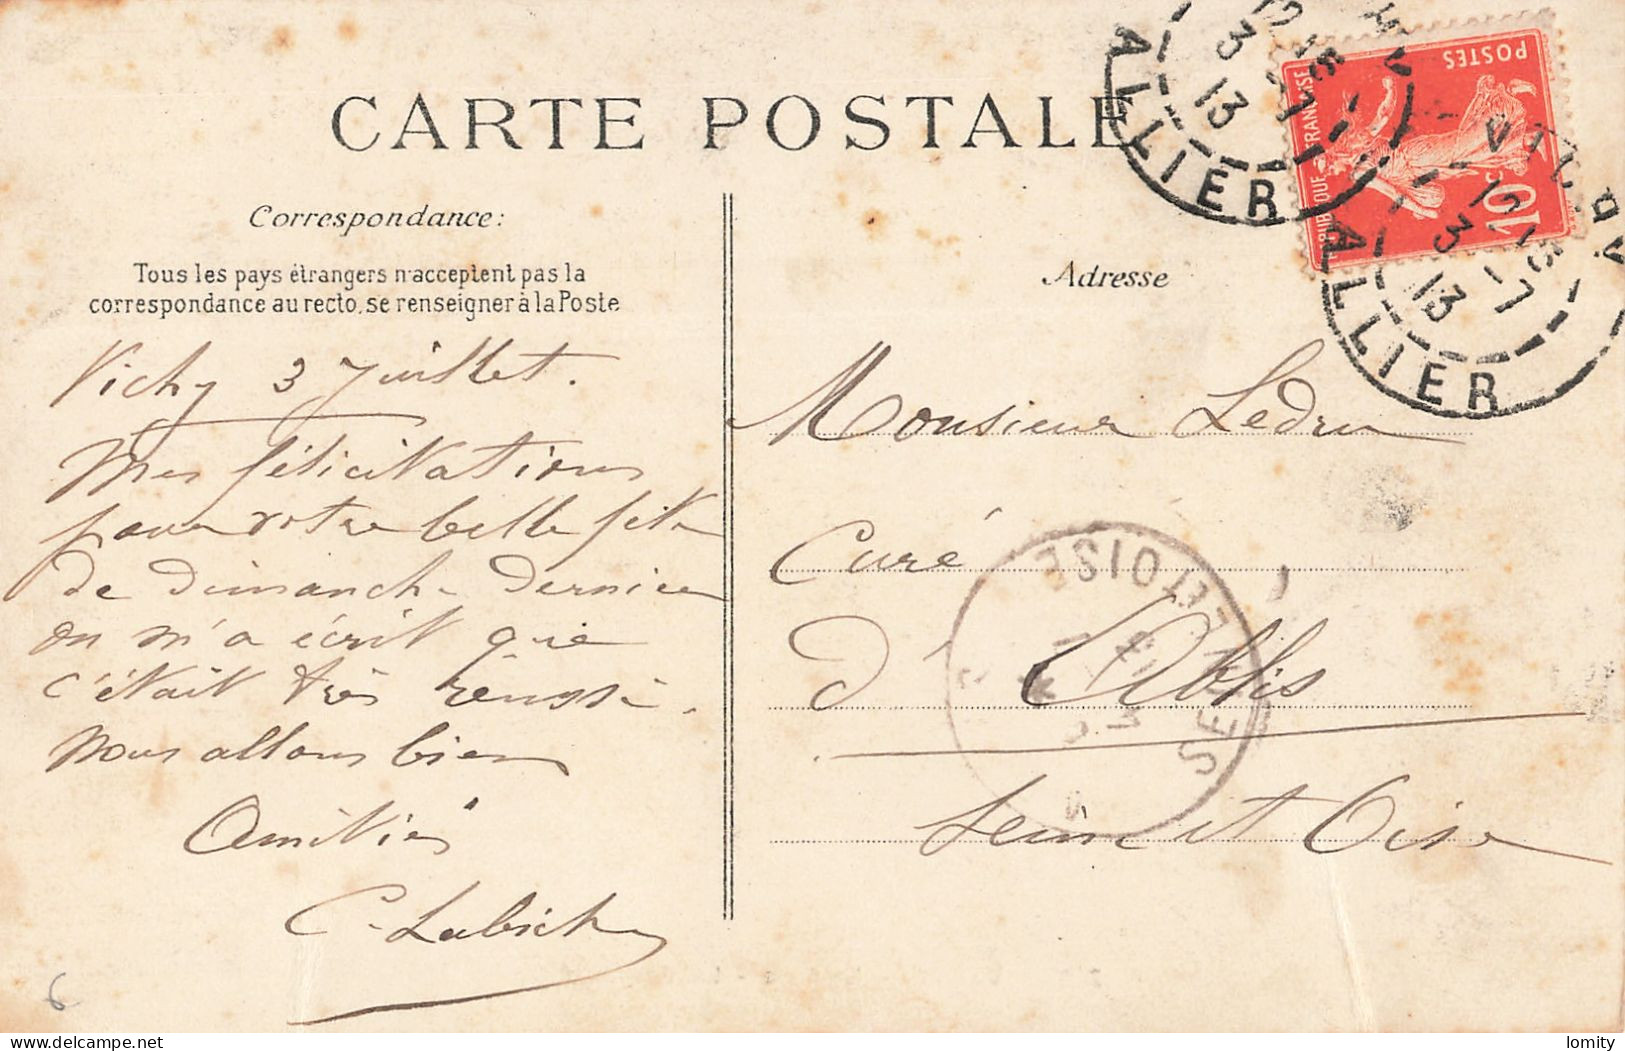 CARTE POSTALE
Correspondance:
Tous les pays étrangers n'acceptent pas la
correspondance au recto, se renseigner à la Poste
Vichy 3 Juillet.
Mes félicitations
pour votre belle fête
de dimanche dernier
on m'a écrit que
c'était très réussi.
Nous allons bien
Amitiés
C. Labich
6
Adresse
Monsieur Ledru
Curé
d'Ablis
Seine et Oise
POSTES
REPUBLIQUE FRANÇAISE
10c
ALLIER
12 15
3 -7
13
ALLIER
12 15
3 -7
13
SEINE ET OISE
delcampe.net
lomity